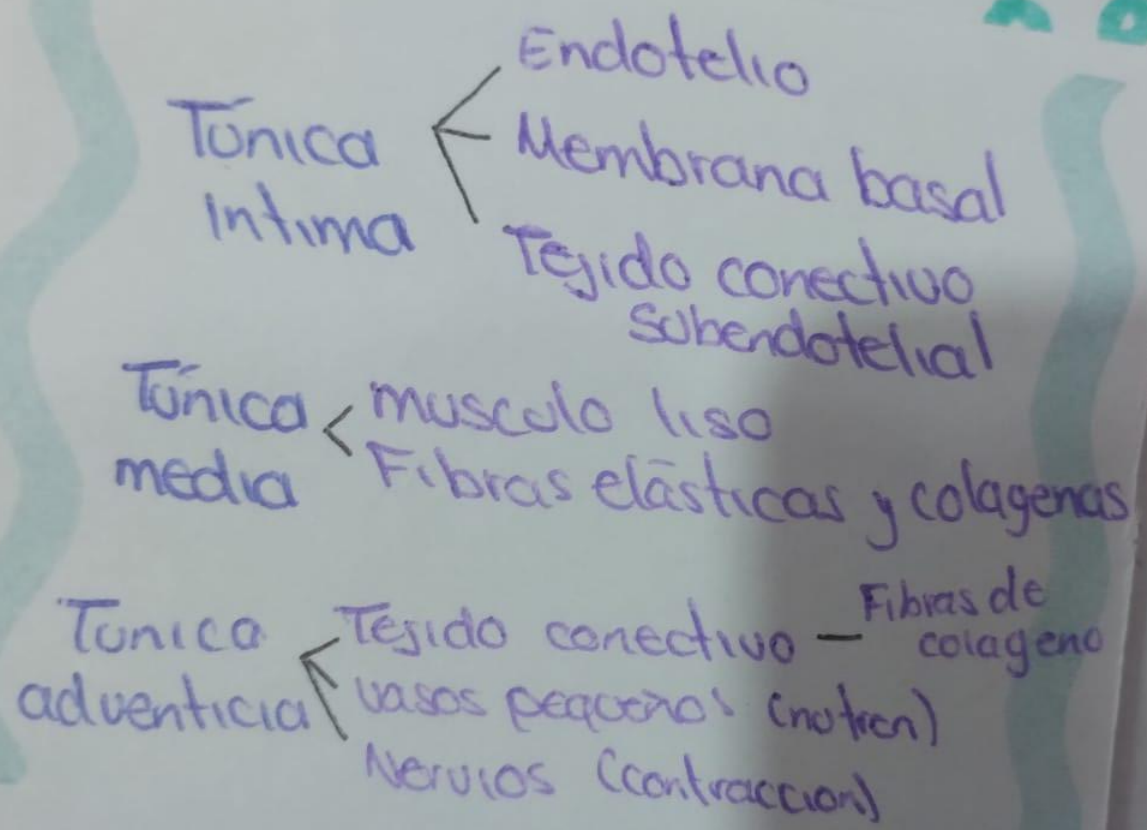 Endotelio
Túnica
íntima
Membrana basal
Tejido conectivo
subendotelial
Túnica
media
musculo liso
Fibras elásticas y colagenas
Tunica
adventicia
Tejido conectivo — Fibras de
colageno
vasos pequeños (nutren)
Nervios (contraccion)